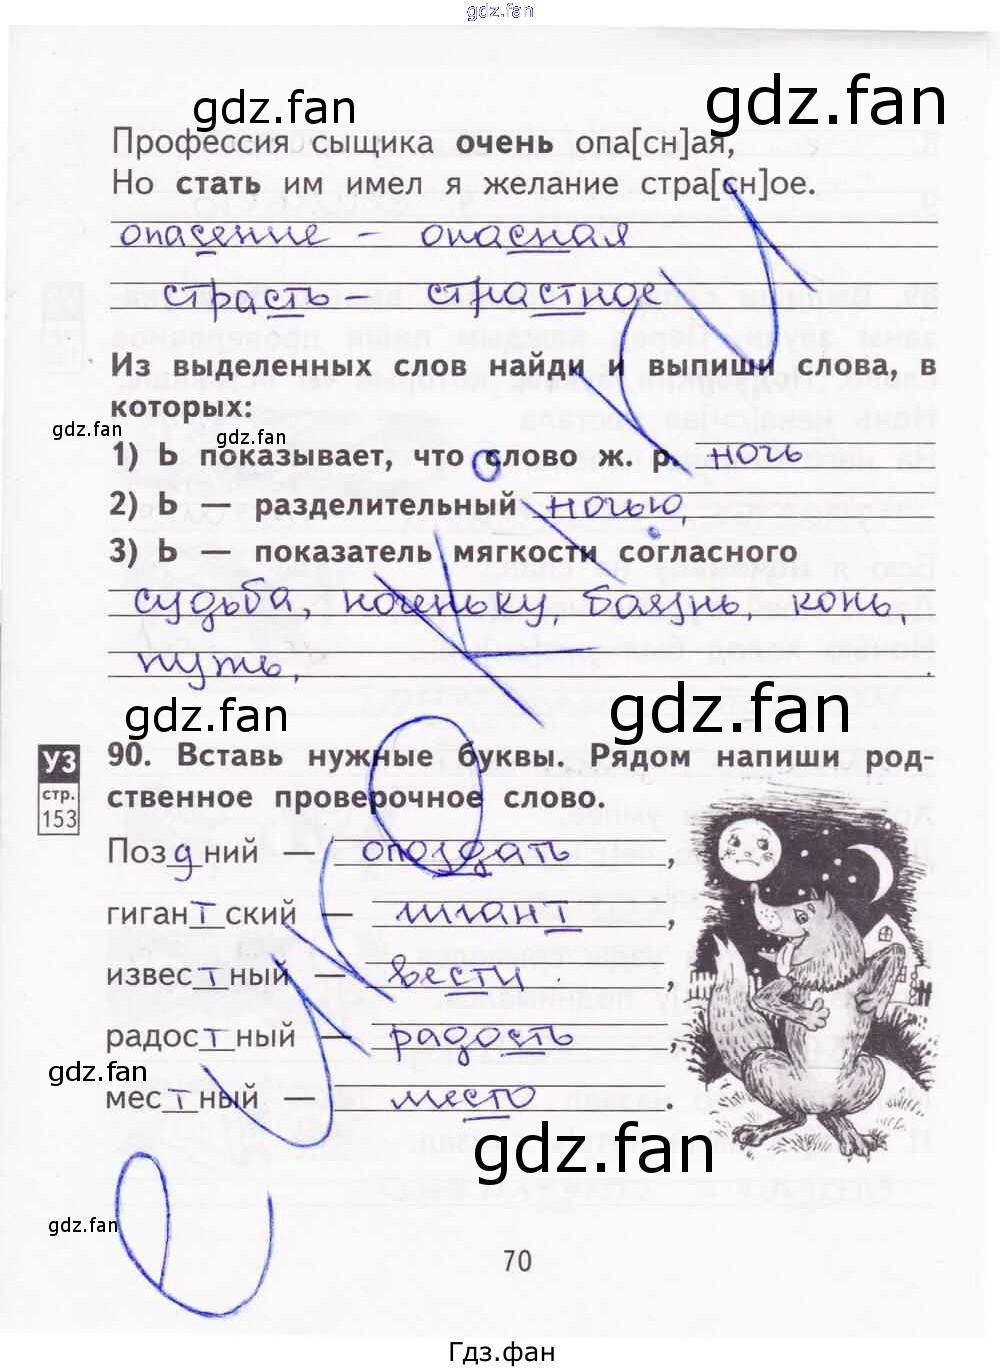 gdz.fan
gdz.fan
gdz.fan
Профессия сыщика очень опа[сн]ая,
Но стать им имел я желание стра[сн]ое.
опасение – опасная
страсть – страстное
Из выделенных слов найди и выпиши слова, в
которых:
gdz.fan
gdz.fan
1) Ь показывает, что слово ж. р. ночь
2) Ь разделительный ночью,
3) Ь — показатель мягкости согласного
судьба, ноченьку, боязнь, конь,
путь.
gdz.fan
gdz.fan
УЗ
стр.
153
90. Вставь нужные буквы. Рядом напиши род-
ственное проверочное слово.
Поздний — опоздать,
гигантский — гигант,
известный — вести,
радостный — радость,
gdz.fan
местный — место.
gdz.fan
gdz.fan
70
Гдз.фан